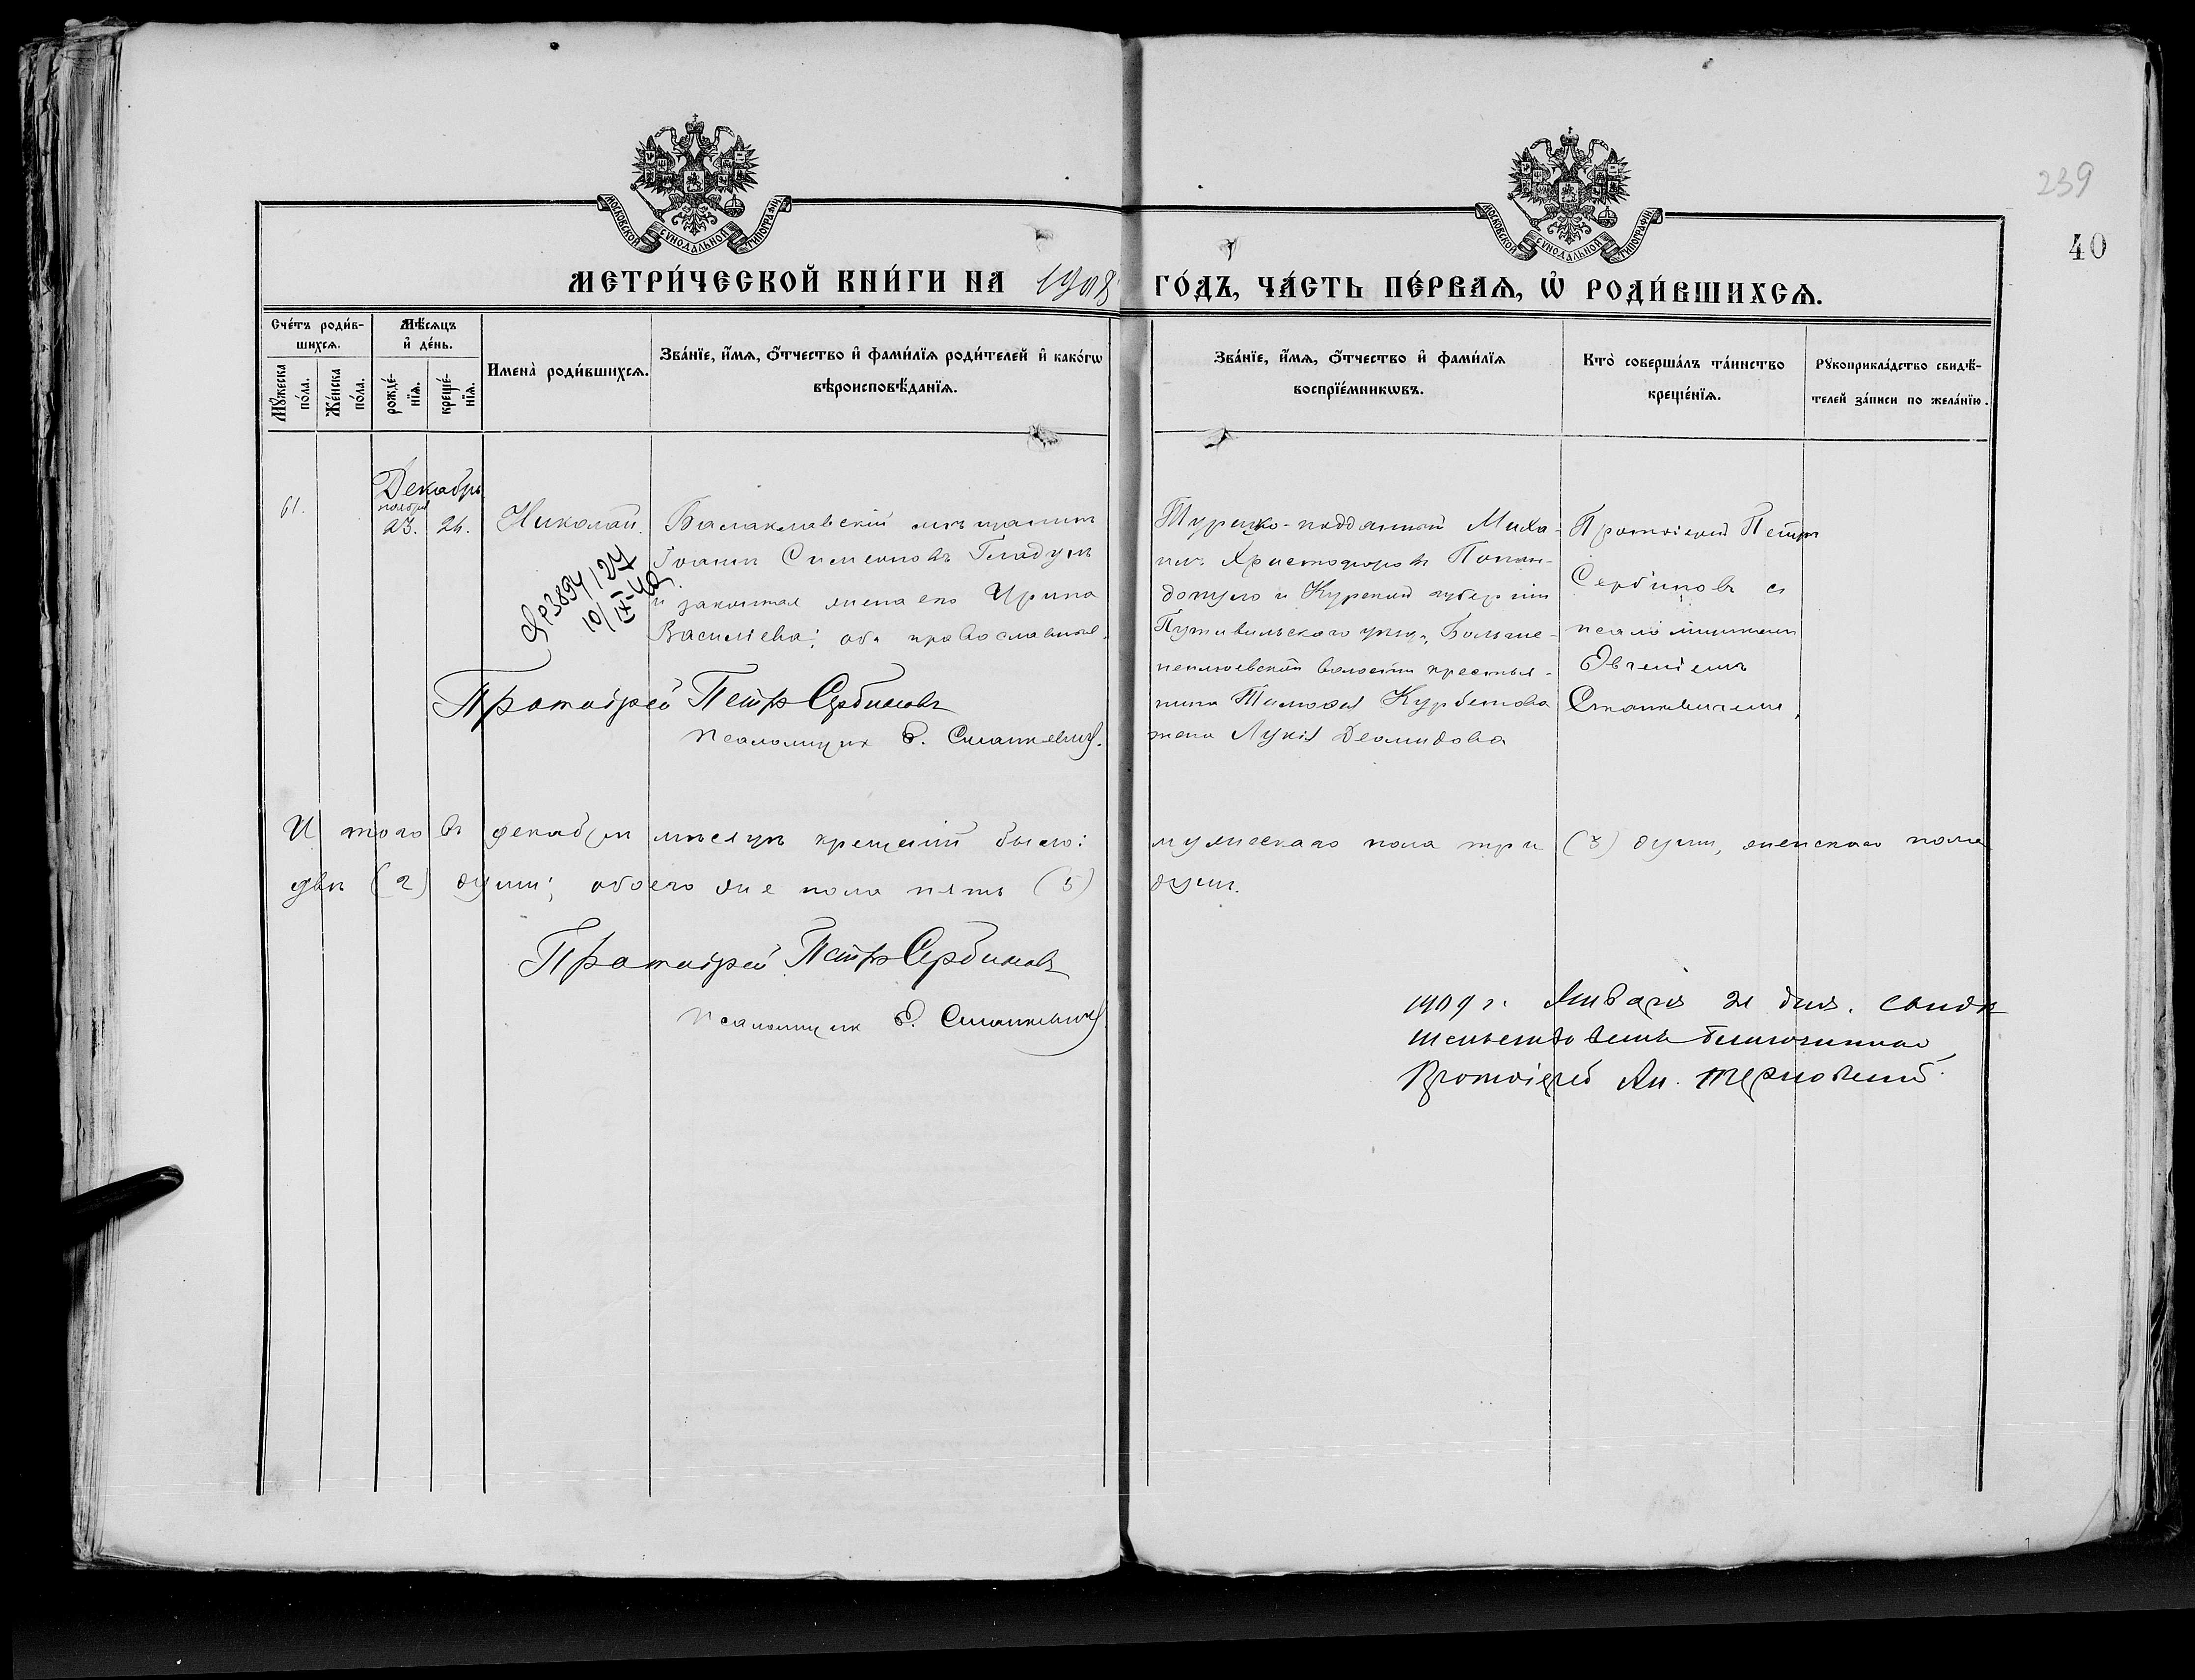 239
40
МОСКОВСКОЙ СѴНОДАЛЬНОЙ ТИПОГРАФІИ
МОСКОВСКОЙ СѴНОДАЛЬНОЙ ТИПОГРАФІИ
МЕТРИ́ЧЕСКОЙ КНИ́ГИ НА 1908 ГО́ДЪ, ЧА́СТЬ ПЕ́РВАѦ, Ѡ҆ РОДИ́ВШИХСѦ.
Сче́тъ роди́в-
шихсѧ.
Мꙋ́жеска по́ла.
Же́нска по́ла.
Мѣ́сѧцъ
и҆ де́нь.
рожде́-
нїѧ.
креще́-
нїѧ.
Имена̀ роди́вшихсѧ.
Зва́нїе, и҆́мѧ, ѻ҆́тчество и҆ фами́лїѧ роди́телей и҆ како́гѡ
вѣроисповѣ́данїѧ.
Зва́нїе, и҆́мѧ, ѻ҆́тчество и҆ фами́лїѧ
воспрїе́мникѡвъ.
Кто̀ соверша́лъ та́инство
креще́нїѧ.
Рꙋкоприкла́дство свидѣ́-
телей за́писи по жела́нїю.
Декабрь
61.
ноября
23. 26.
Николай
Балаклавскій мѣщанинъ
Іоаннъ Симеоновъ Гладунъ
и законная жена его Ирина
Васильева; оба православные.
3894/27
10/IX-40
Турецко-подданный Миха-
илъ Христофоровъ Попан-
допуло и Курской губерніи
Путивльскаго уѣзда, Больше-
неплюевской волости крестья-
нина Тимофея Курбетова
жена Лукія Деомидова
Протоіерей Петръ
Сербиновъ съ
псаломщикомъ
Евгеніемъ
Станкевичемъ.
Протоіерей Петръ Сербиновъ
Псаломщикъ Е. Станкевичъ.
Итого въ декабрѣ мѣсяцѣ крещеній было: мужескаго пола три (3) души, женскаго пола
двѣ (2) души; обоего же пола пять (5) душъ.
Протоіерей Петръ Сербиновъ
Псаломщикъ Е. Станкевичъ
1909 г. Января 21 дня. Свидѣ
тельствовалъ благочинный
Протоіерей Ан. Терновский